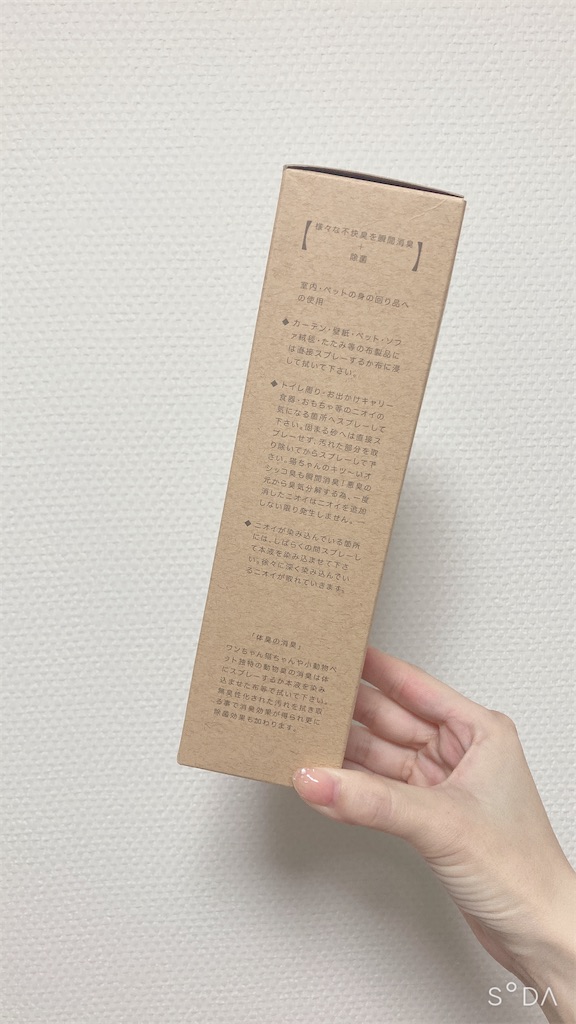 【様々な不快臭を瞬間消臭
+
除菌】
室内・ペットの身の回り品へ
の使用
◆カーテン・壁紙・ペット・ソフ
ァ絨毯・たたみ等の布製品に
は直接スプレーするか布に浸
して拭いて下さい。
◆トイレ周り・お出かけキャリー
食器・おもちゃ等のニオイの
気になる箇所へスプレーして
下さい。固まる砂へは直接ス
プレーせず、汚れた部分を取
り除いてからスプレーして下
さい。猫ちゃんのキツ〜いオ
シッコ臭も瞬間消臭!悪臭の
元から臭気分解する為、一度
消したニオイはニオイを追加
しない限り発生しません。
◆ニオイが染み込んでいる箇所
には、しばらくの間スプレーし
て本液を染み込ませて下さ
い。徐々に深く染み込んでい
るニオイが取れていきます。
「体臭の消臭」
ワンちゃん猫ちゃんや小動物ペ
ット独特の動物臭の消臭は体
にスプレーするか本液を染み
込ませた布等で拭いて下さい。
無臭性化された汚れを拭き取
る事で消臭効果が得られ更に
除菌効果も加わります。
SODA